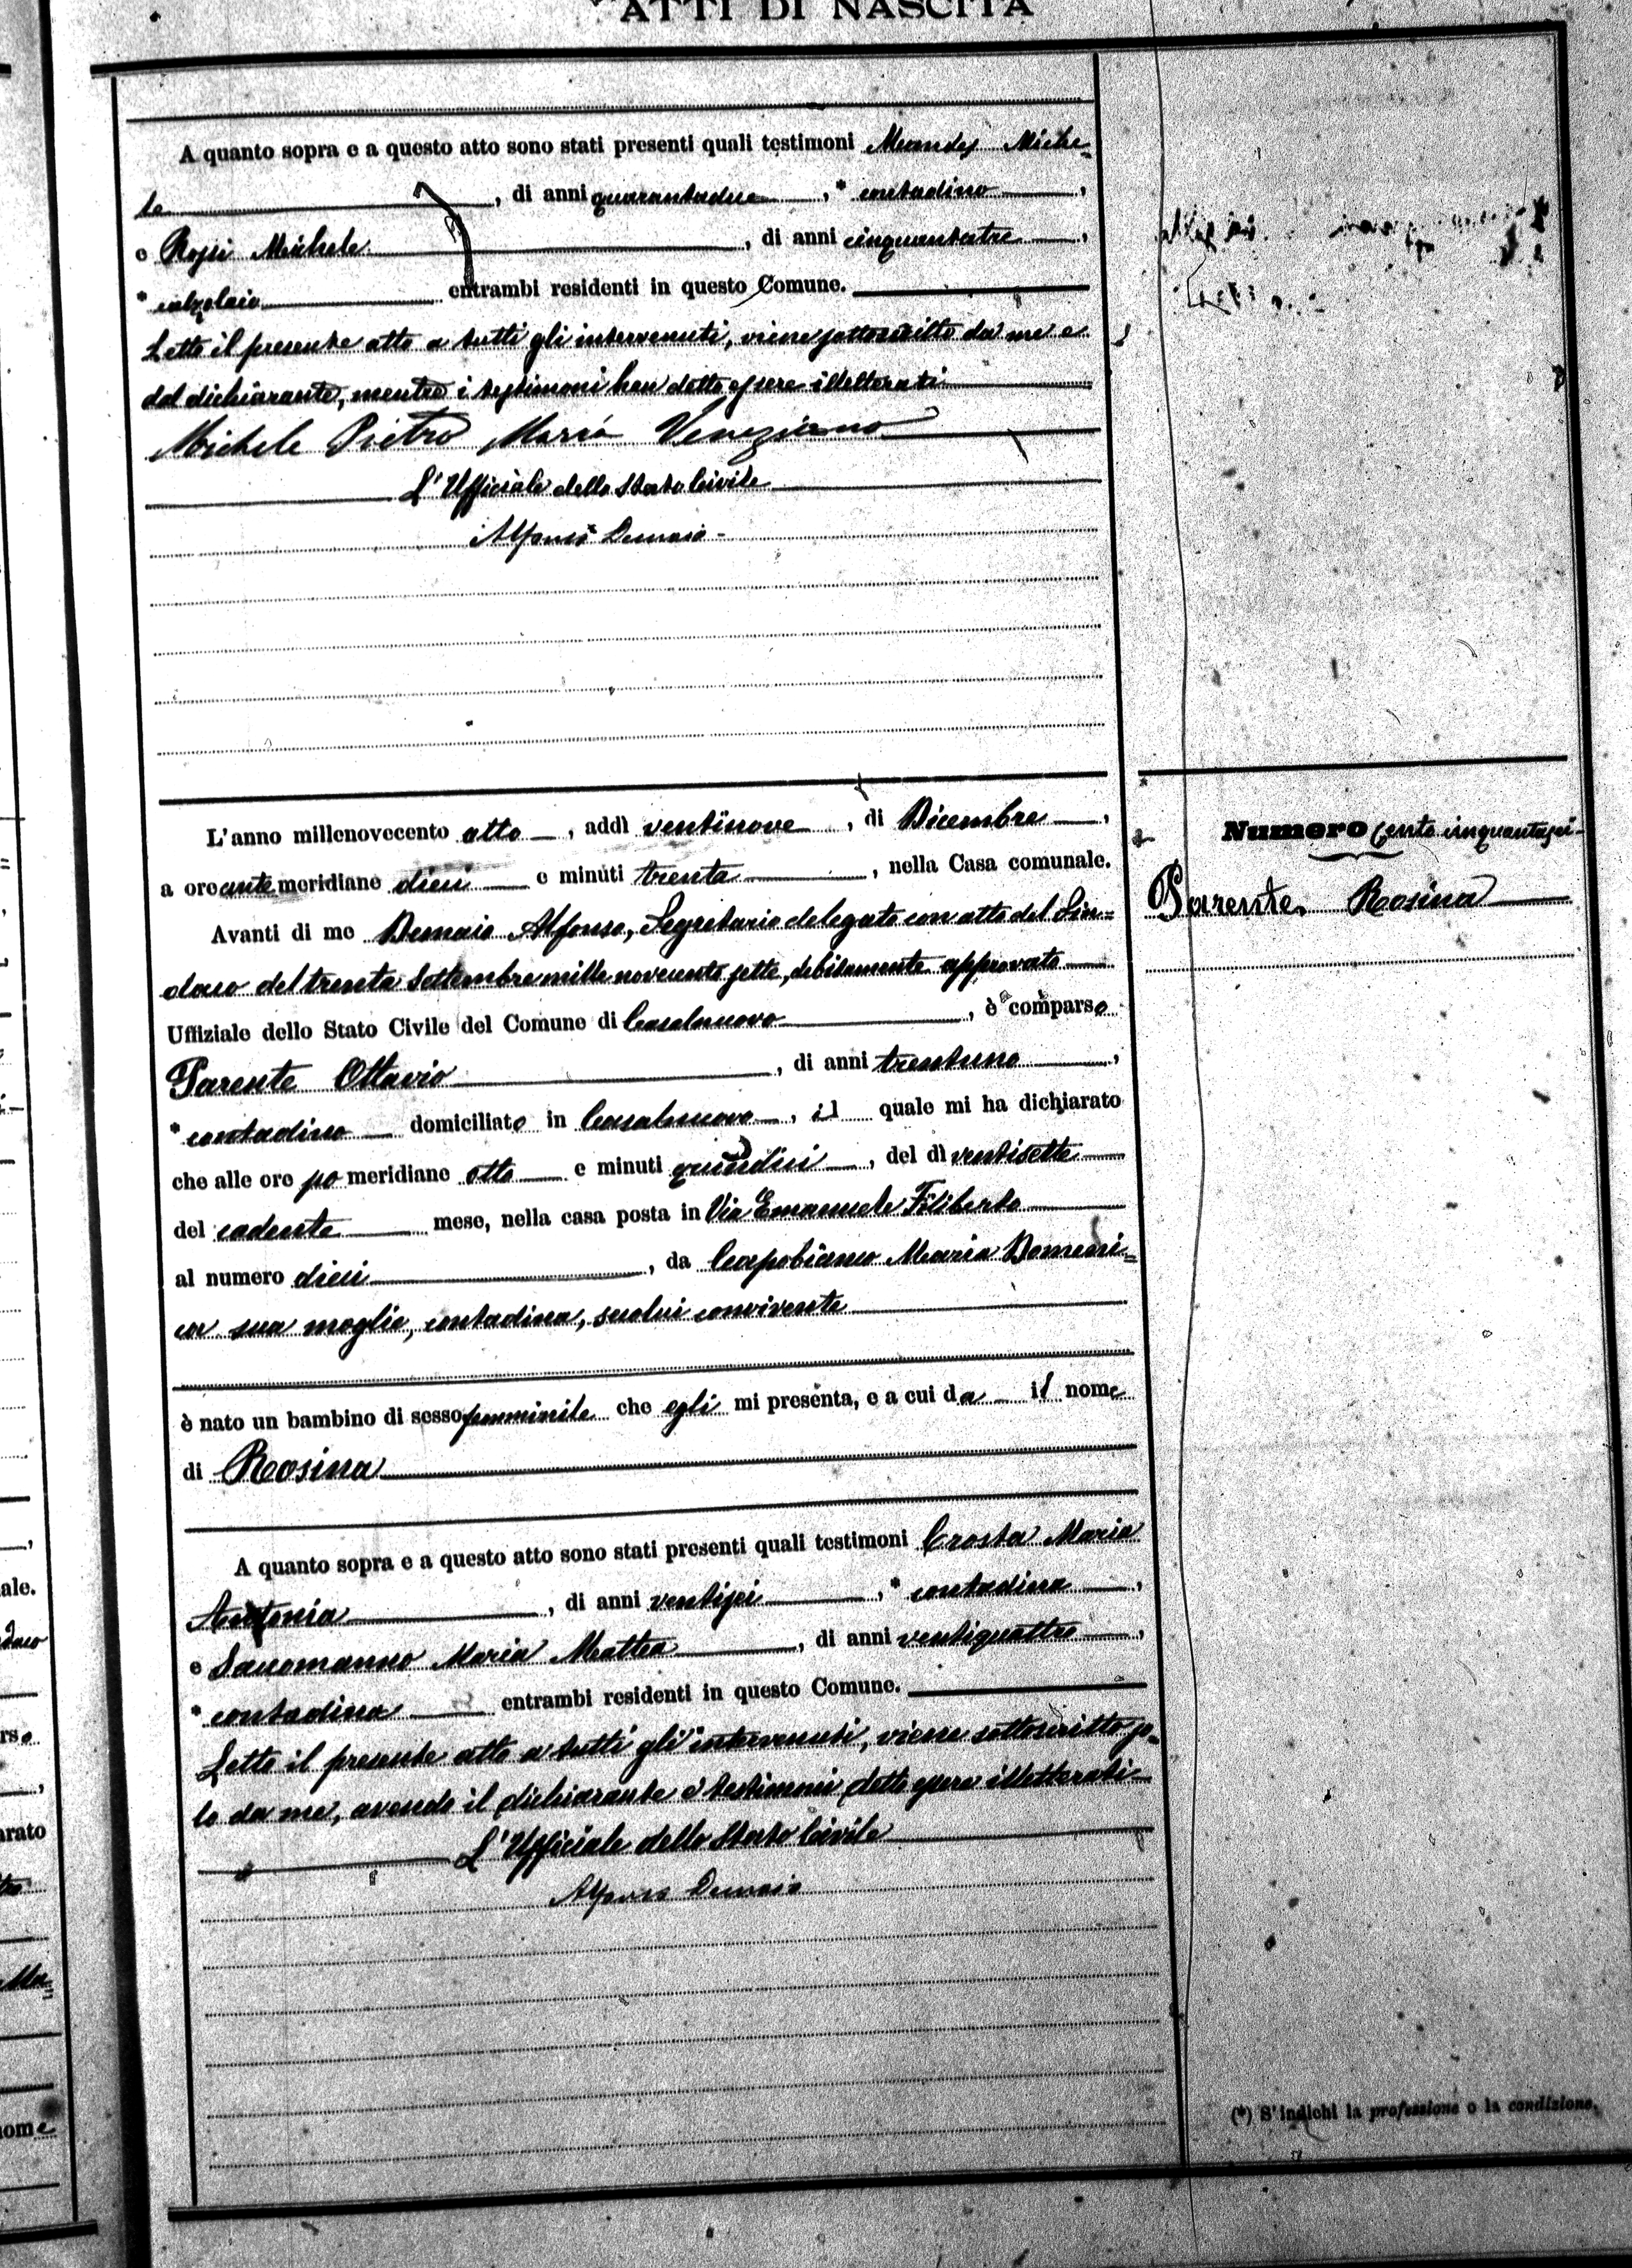 ATTI DI NASCITA
A quanto sopra e a questo atto sono stati presenti quali testimoni Miche=
le, di anni quarantadue, * contadino,
e Rossi Michele, di anni cinquantatre,
* calzolaio entrambi residenti in questo Comune.
Letto il presente atto a tutti gli intervenuti, viene sottoscritto da me e
dal dichiarante, mentre i testimoni han detto essere illetterati
Michele Pietro Maria Veneziano
L'Ufficiale dello Stato Civile
Alfonso Demaio
L'anno millenovecento otto, addì ventinove, di Dicembre,
a ore antemeridiane dieci e minuti trenta, nella Casa comunale.
Avanti di me Demaio Alfonso, Segretario delegato con atto del Sin=
daco del trenta Settembre mille novecento sette, debitamente approvato
Uffiziale dello Stato Civile del Comune di Casalnuovo, è comparso
Parente Ottavio, di anni trentuno,
* contadino domiciliato in Casalnuovo, il quale mi ha dichiarato
che alle ore pomeridiane otto e minuti quindici, del dì ventisette
del cadente mese, nella casa posta in Via Emanuele Filiberto
al numero dieci, da Capobianco Maria Domeni=
ca sua moglie, contadina, seco lui convivente
è nato un bambino di sesso femminile che egli mi presenta, e a cui da il nome
di Rosina
A quanto sopra e a questo atto sono stati presenti quali testimoni Crosta Maria
Antonia, di anni ventisei, * contadina,
e Saccomanno Maria Mattea, di anni ventiquattro,
* contadina entrambi residenti in questo Comune.
Letto il presente atto a tutti gli intervenuti, viene sottoscritto so=
lo da me, avendo il dichiarante e testimoni detto essere illetterati
L'Ufficiale dello Stato Civile
Alfonso Demaio
Numero cento cinquantasei
Parente Rosina
(*) S'indichi la professione o la condizione.
ale.
daco
rso
arato
nome